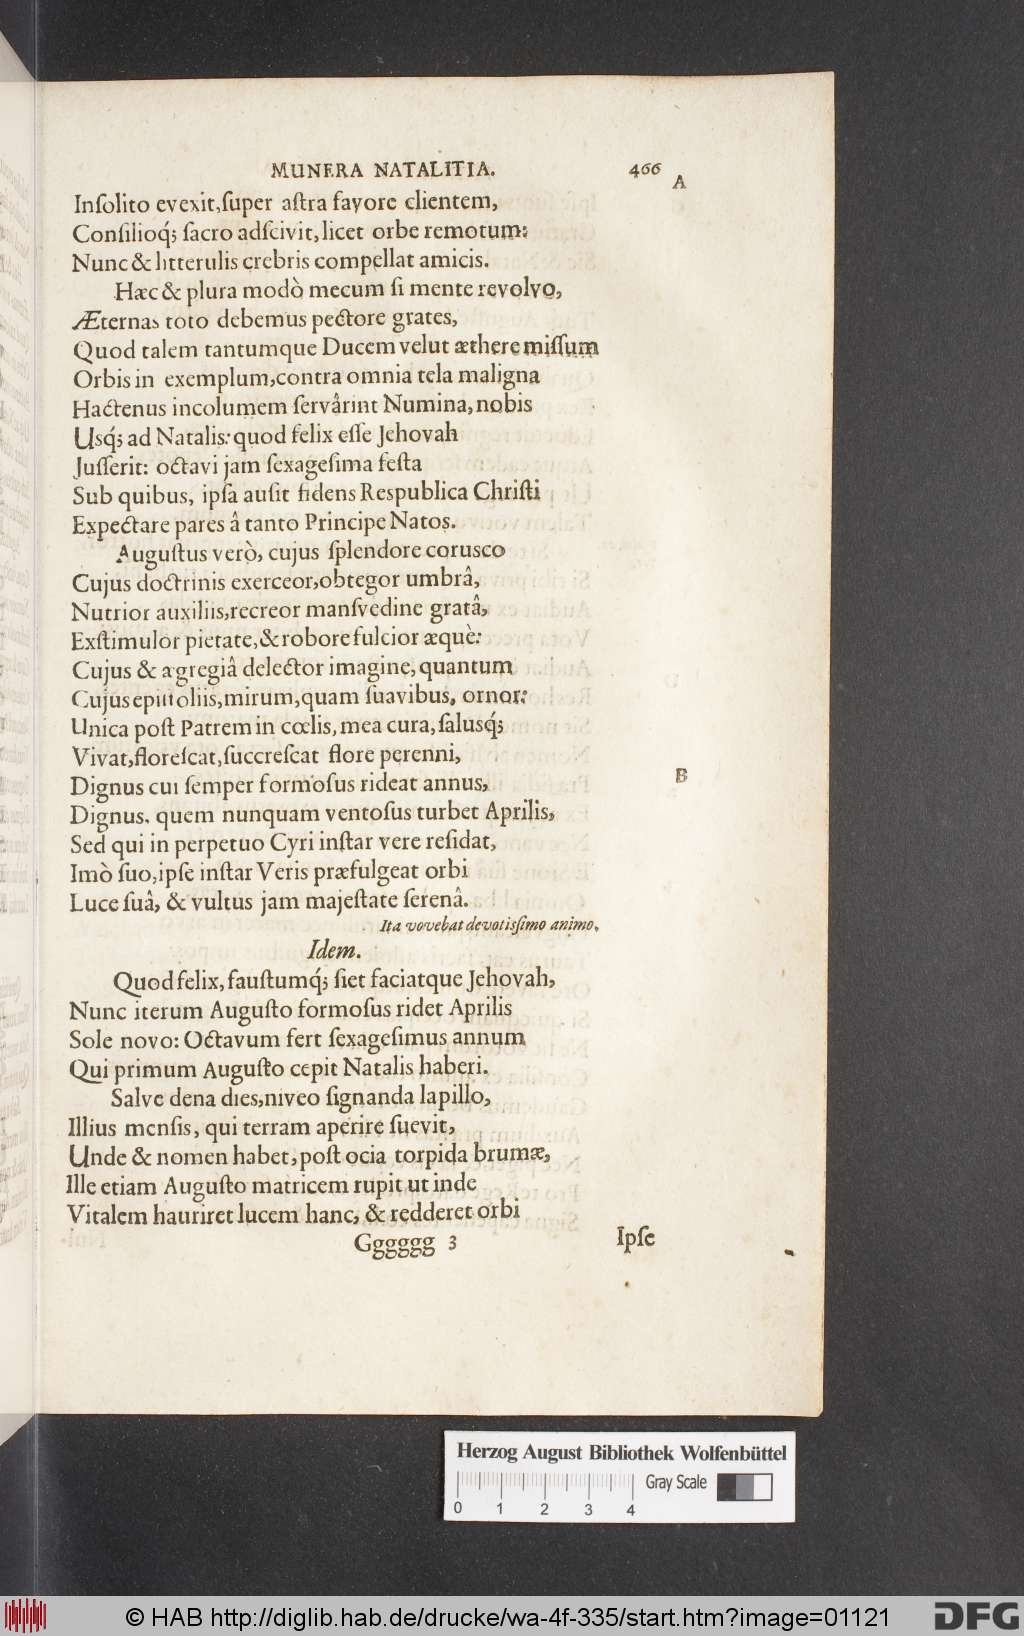 MUNERA NATALITIA. 466
A
Inſolito evexit,ſuper aſtra favore clientem,
Conſilioq́; ſacro adſcivit, licet orbe remotum:
Nunc & litterulis crebris compellat amicis.
Hæc & plura modò mecum ſi mente revolvo,
Æternas toto debemus pectore grates,
Quod talem tantumque Ducem velut æthere miſſum
Orbis in exemplum,contra omnia tela maligna
Hactenus incolumem ſervârint Numina, nobis
Usq́; ad Natalis: quod felix eſſe Jehovah
Juſſerit: octavi jam ſexageſima feſta
Sub quibus, ipſa auſit fidens Respublica Chriſti
Expectare pares â tanto Principe Natos.
Auguſtus verò, cujus ſplendore corusco
Cujus doctrinis exerceor,obtegor umbrâ,
Nutrior auxiliis,recreor manſvedine gratâ,
Exſtimulor pietate,& robore fulcior æquè:
Cujus & agregiâ delector imagine, quantum
Cujus epiſtoliis,mirum,quam ſuavibus, ornor:
Unica poſt Patrem in cœlis, mea cura, ſalusq́;
Vivat,floreſcat,ſuccreſcat flore perenni,
Dignus cui ſemper formoſus rideat annus,
B
Dignus, quem nunquam ventoſus turbet Aprilis,
Sed qui in perpetuo Cyri inſtar vere reſidat,
Imò ſuo,ipſe inſtar Veris præfulgeat orbi
Luce ſuâ, & vultus jam majeſtate ſerenâ.
Ita vovebat devotiſſimo animo.
Idem.
Quod felix, fauſtumq́; ſiet faciatque Jehovah,
Nunc iterum Auguſto formoſus ridet Aprilis
Sole novo: Octavum fert ſexageſimus annum
Qui primum Auguſto cepit Natalis haberi.
Salve dena dies,niveo ſignanda lapillo,
Illius menſis, qui terram aperire ſuevit,
Unde & nomen habet, poſt ocia torpida brumæ,
Ille etiam Auguſto matricem rupit ut inde
Vitalem hauriret lucem hanc, & redderet orbi
Gggggg 3 Ipſe
Herzog August Bibliothek Wolfenbüttel
Gray Scale
0 1 2 3 4
© HAB http://diglib.hab.de/drucke/wa-4f-335/start.htm?image=01121
DFG